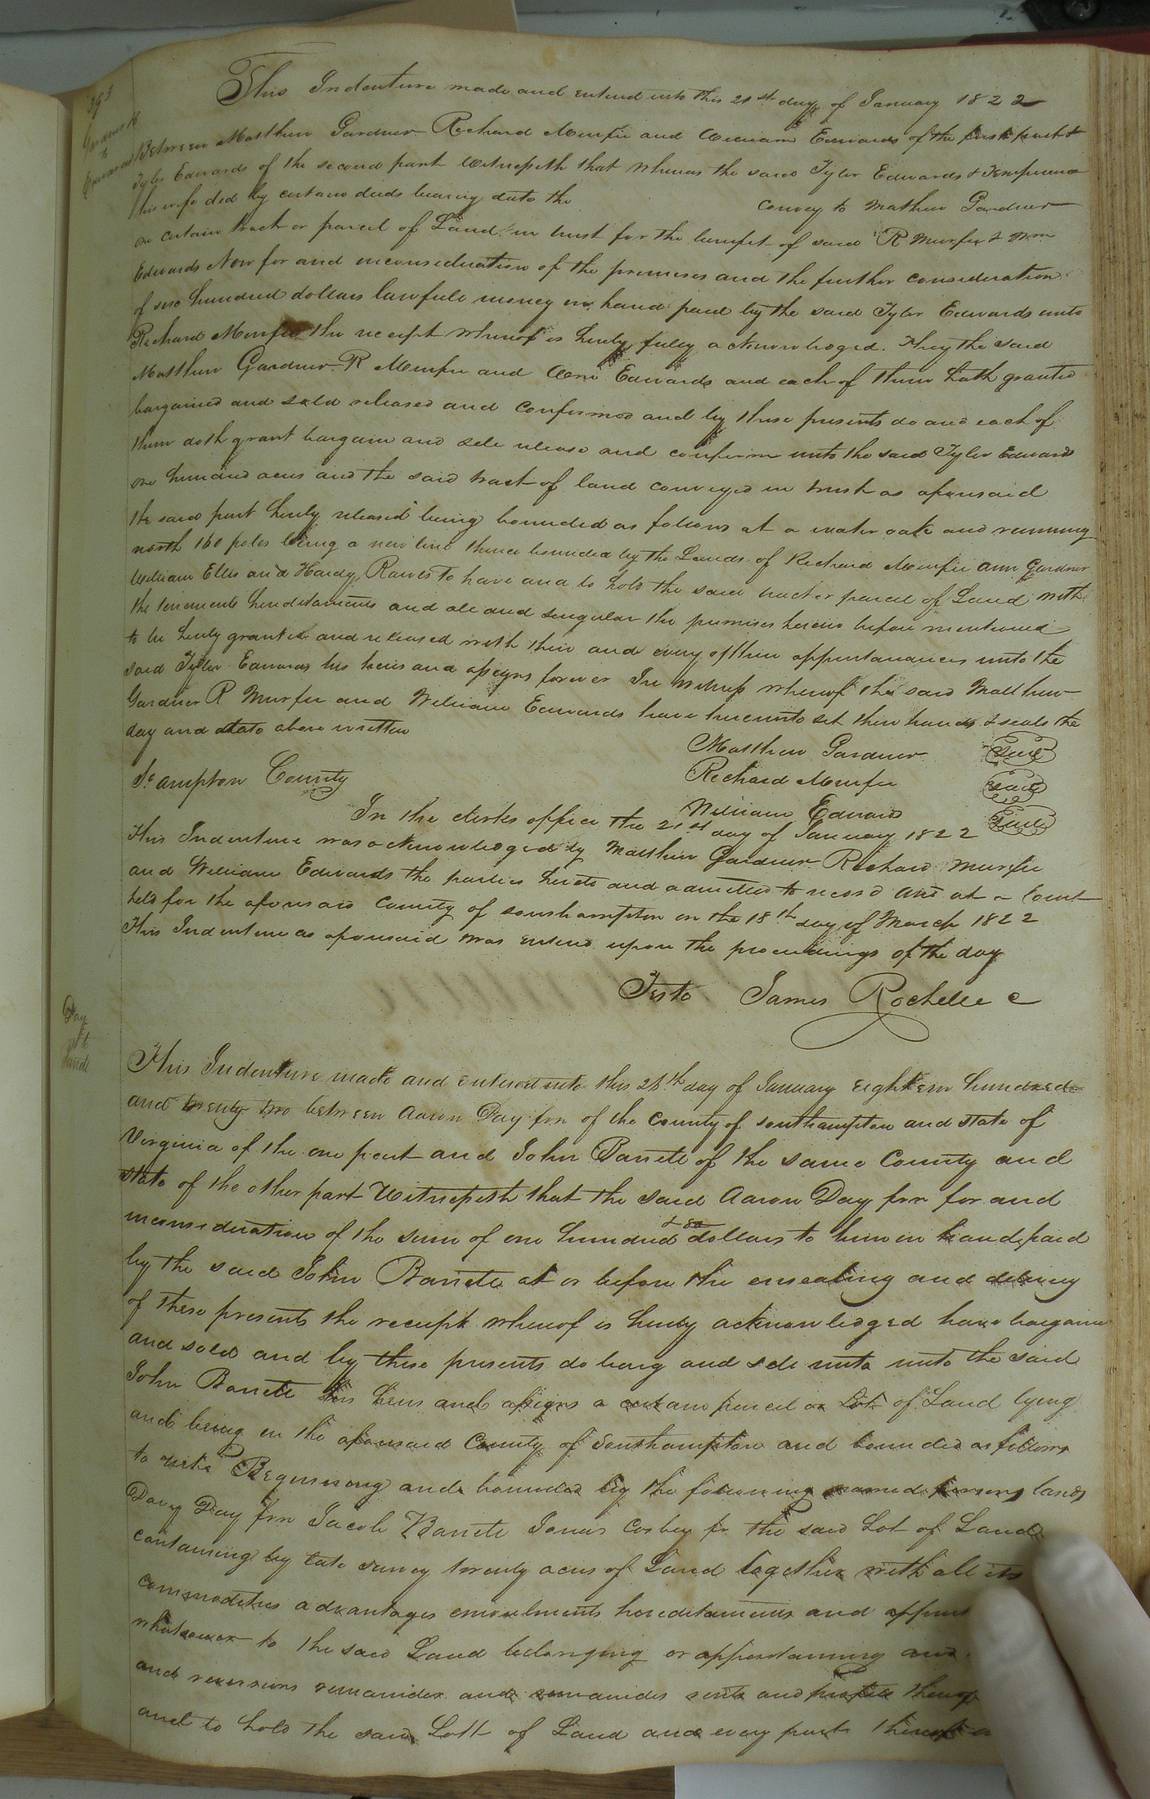 393
This Indenture made and entered into this 21st day of January 1822
Between Matthew Gardner Richard Murfee and William Edwards of the first part &
Tyler Edwards of the second part Witnesseth that whereas the said Tyler Edwards & Temperance
his wife did by certain deeds bearing date the convey to Mathew Gardner
on certain tract or parcel of Land in trust for the benefit of said R Murfee & Wm
Edwards Now for and inconsideration of the premises and the further consideration
of one hundred dollars lawfull money in hand paid by the said Tyler Edwards unto
Richard Murfee the receipt whereof is hereby fully acknowledged. They the said
Matthew Gardner R Murfee and Wm Edwards and each of them hath granted
bargained and sold released and confirmed and by these presents do and each of
them doth grant bargain and sele release and confirm unto the said Tyler Edwards
one hundred acres and the said tract of land conveyed in trust as aforesaid
the said part hereby released being bounded as follows at a water oake and running
north 160 poles being a new line thence bounded by the Lands of Richard Murfee ann Gardner
William Ellis and Hardy Rawes to have and to hold the said tract or parcel of Land with
the tenements hereditaments and all and singular the premises herein before mentioned
to be hereby granted and released with their and every of their appurtanances unto the
said Tyler Edwards his heirs and assigns forever In witness whereof the said Matthew
Gardner R Murfee and William Edwards have hereunto set their hands & seals the
day and date above written
Matthew Gardner Seal
Richard Murfee Seal
William Edwards Seal
So ampton County
In the clerks office the 21st day of January 1822
This Indenture was acknowledged by Matthew Gardner Richard Murfee
and William Edwards the parties hereto and admitted to record and at a Court
held for the aforesaid County of southampton on the 18th day of March 1822
This Indenture as aforesaid was entered upon the proceedings of the day
Teste James Rochelle C
Day
to
This Indenture made and entered into this 28th day of January Eighteen hundred
and twenty two between Aaron Day jnr of the County of southampton and state of
Virginia of the one part and John Barrete of the same County and
state of the other part Witnesseth that the said Aaron Day jnr for and
inconsideration of the sum of one hundred dollars to him in hand paid
by the said John Barrete at or before the ensealing and delivery
of these presents the receipt whereof is hereby acknowledged have bargained
and sold and by these presents do barg and sele unto unto the said
John Barrete his heirs and assigns a certain parcel or Lot of Land lying
and being in the aforesaid County of Southampton and bounded as follows
to wit Beginning and bounded by the following named persons lands
Davy Day jnr Jacob Barrete James Cosby jr the said Lot of Land
containing by late survey twenty acres of Land together with all its
commodities advantages emoulments hereditaments and appurt
whatsoever to the said Land belonging or appertaining and
and reversions remainder and remainder rents and profits thereof
and to hold the said Lott of Land and every part thereof